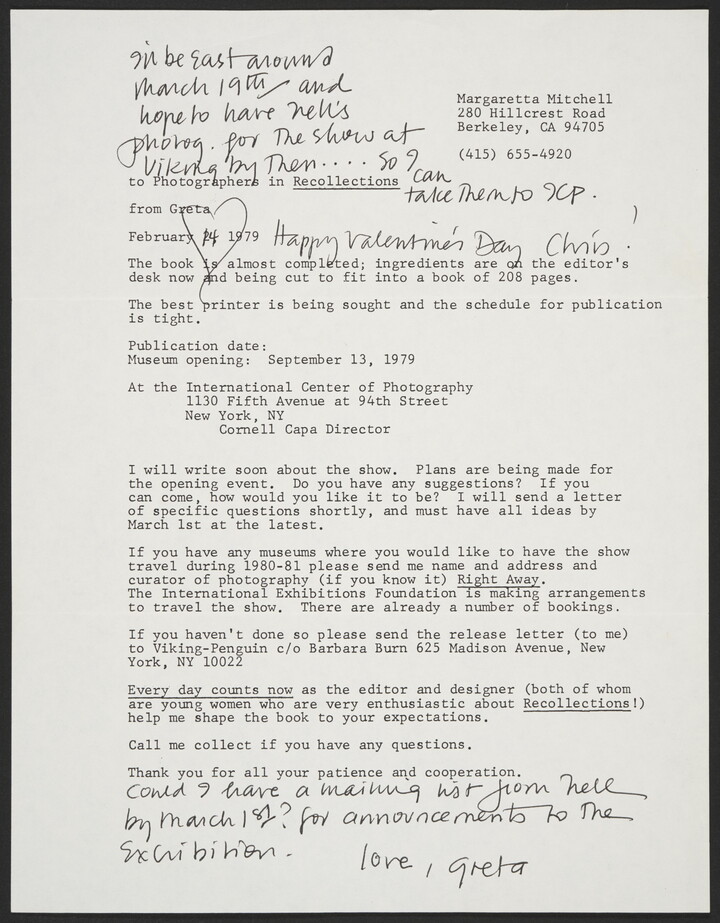 I'll be East around
March 19th and
hope to have Nell's
photog. for the show at
Viking by then.... so I can
take them to ICP.
Margaretta Mitchell
280 Hillcrest Road
Berkeley, CA 94705
(415) 655-4920
to Photographers in Recollections
from Greta
February 14 1979 Happy Valentine's Day Chris!
The book is almost completed; ingredients are on the editor's
desk now and being cut to fit into a book of 208 pages.
The best printer is being sought and the schedule for publication
is tight.
Publication date:
Museum opening: September 13, 1979
At the International Center of Photography
1130 Fifth Avenue at 94th Street
New York, NY
Cornell Capa Director
I will write soon about the show. Plans are being made for
the opening event. Do you have any suggestions? If you
can come, how would you like it to be? I will send a letter
of specific questions shortly, and must have all ideas by
March 1st at the latest.
If you have any museums where you would like to have the show
travel during 1980-81 please send me name and address and
curator of photography (if you know it) Right Away.
The International Exhibitions Foundation is making arrangements
to travel the show. There are already a number of bookings.
If you haven't done so please send the release letter (to me)
to Viking-Penguin c/o Barbara Burn 625 Madison Avenue, New
York, NY 10022
Every day counts now as the editor and designer (both of whom
are young women who are very enthusiastic about Recollections!)
help me shape the book to your expectations.
Call me collect if you have any questions.
Thank you for all your patience and cooperation.
Could I have a mailing list from Nell
by March 1st? for announcements to the
Exhibition.
love, Greta